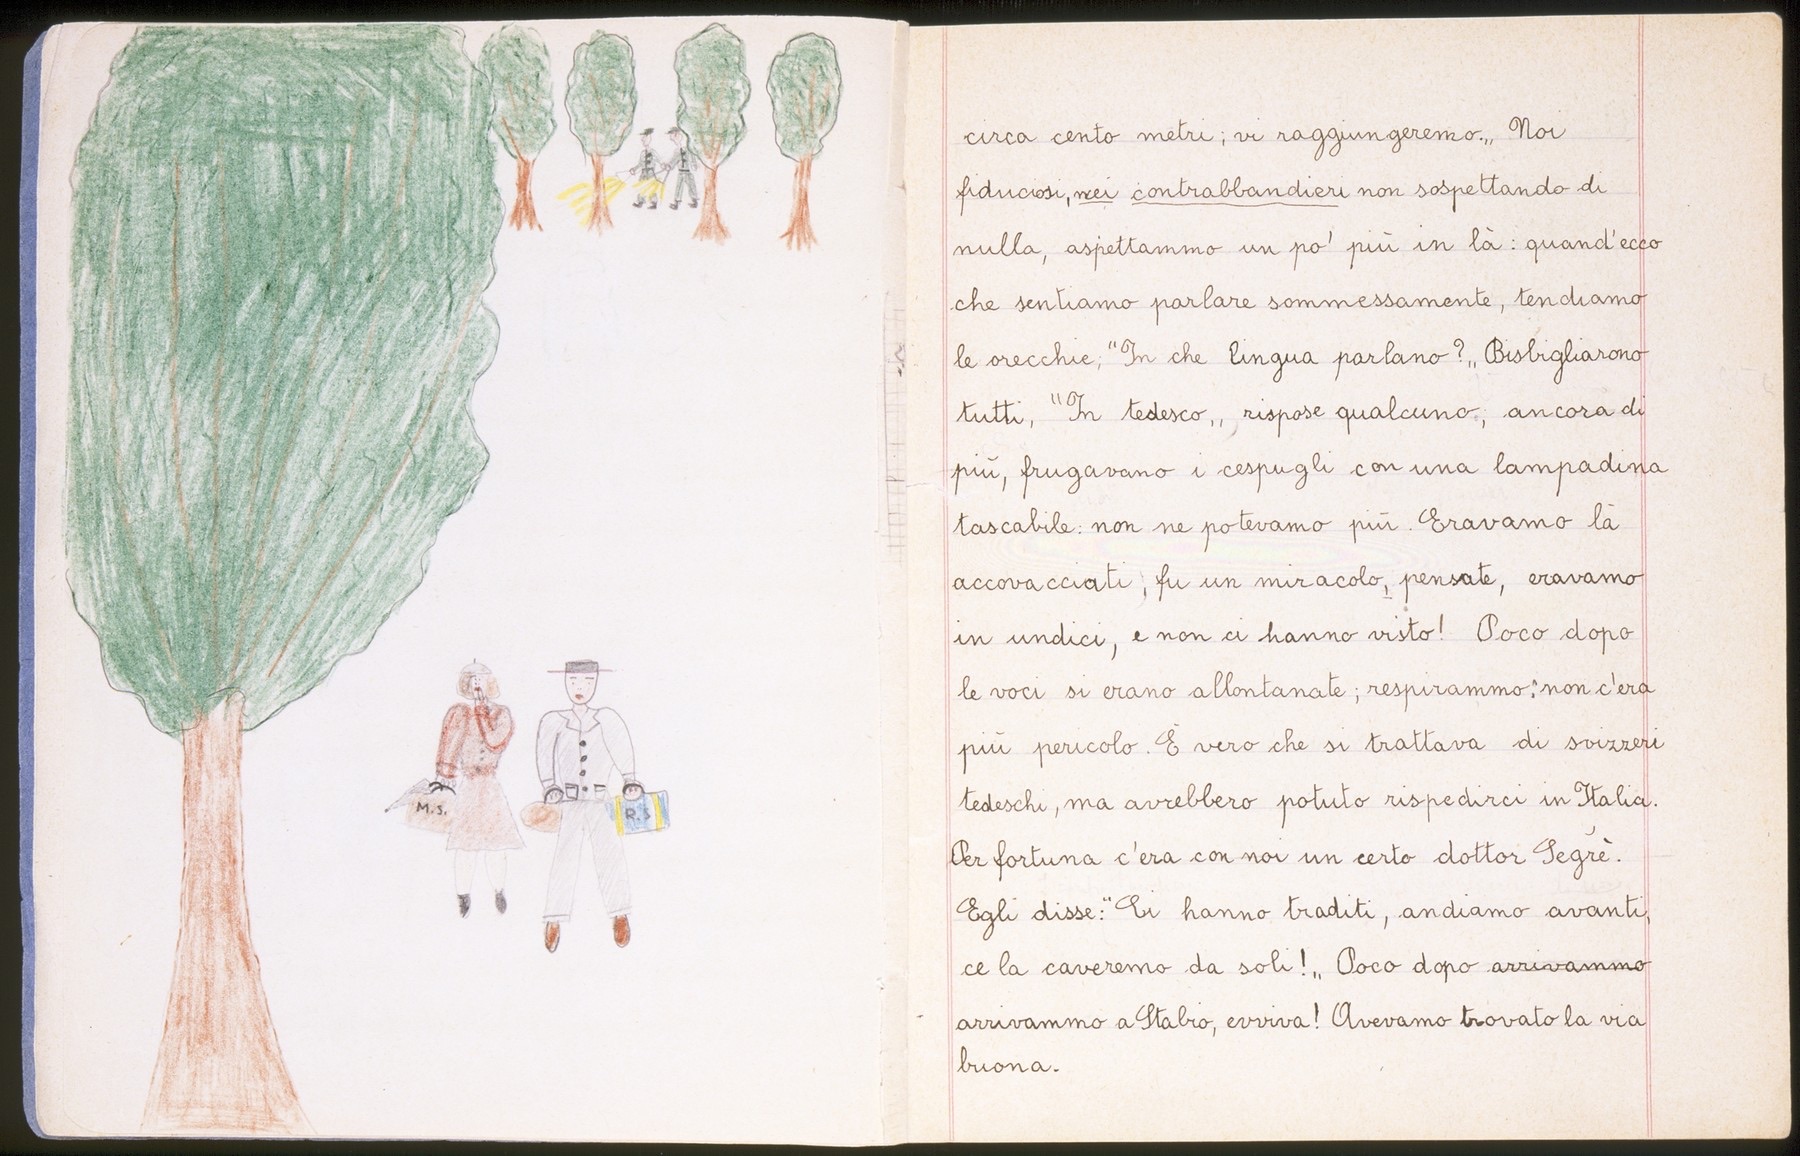 M.S.
R.S
circa cento metri; vi raggiungeremo.„ Noi
fiduciosi, nei contrabbandieri non sospettando di
nulla, aspettammo un po' più in là: quand'ecco
che sentiamo parlare sommessamente, tendiamo
le orecchie; "In che lingua parlano?„ Bisbigliarono
tutti, "In tedesco„ rispose qualcuno; ancora di
più, frugavano i cespugli con una lampadina
tascabile: non ne potevamo più. Eravamo là
accovacciati; fu un miracolo, pensate, eravamo
in undici, e non ci hanno visto! Poco dopo
le voci si erano allontanate; respirammo: non c'era
più pericolo. È vero che si trattava di svizzeri
tedeschi, ma avrebbero potuto rispedirci in Italia.
Per fortuna c'era con noi un certo dottor Segrè.
Egli disse: "Ci hanno traditi, andiamo avanti,
ce la caveremo da soli!„ Poco dopo arrivammo
arrivammo a Stabio, evviva! Avevamo trovato la via
buona.